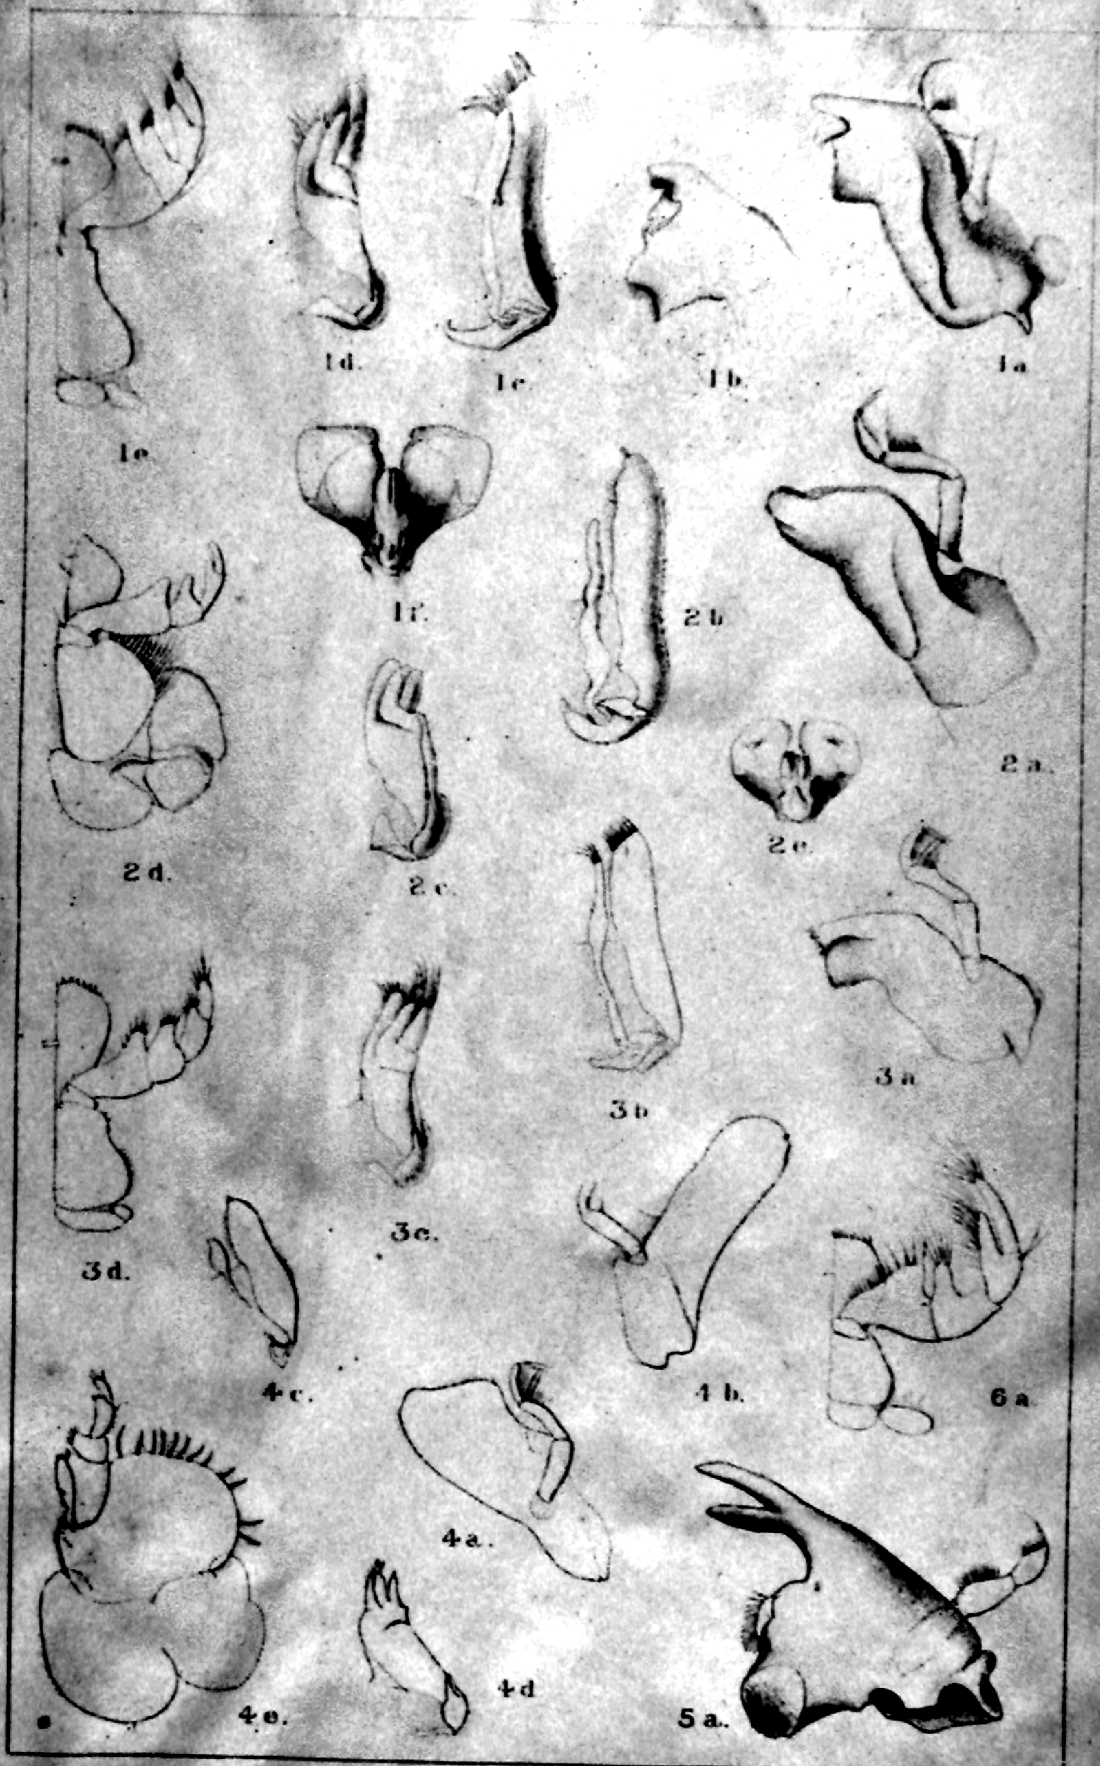 1d.
1c.
1b.
1a
1e
1f.
2b
2a.
2e.
2d.
2c.
3a
3b
3c.
3d.
4c.
4b.
6a
4a.
4d
4e.
5a.